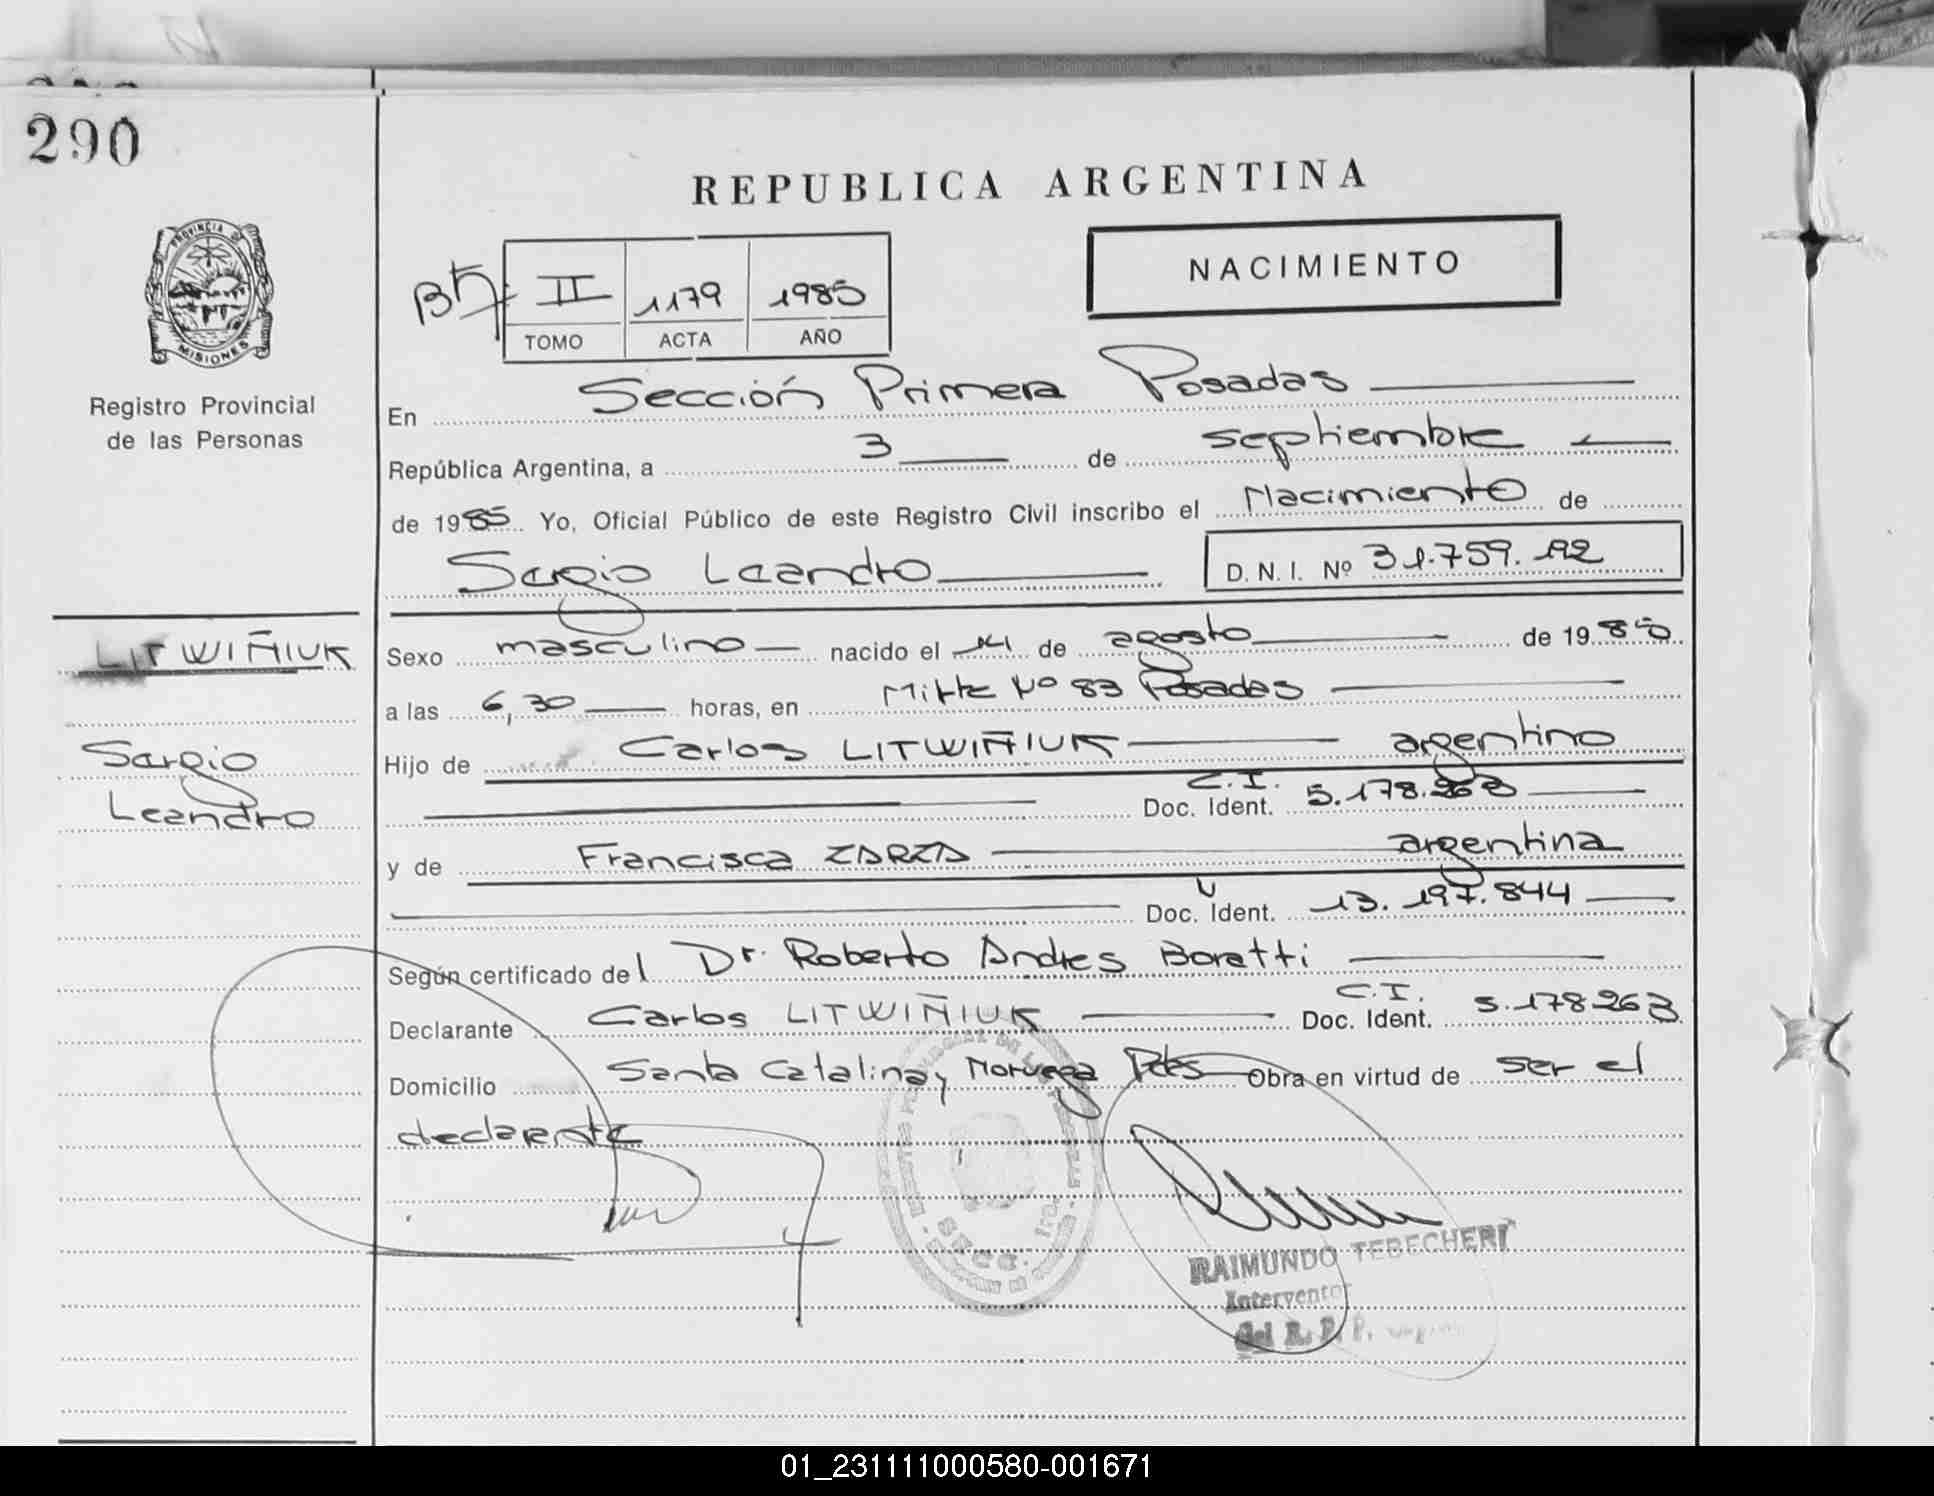 290
REPUBLICA ARGENTINA
NACIMIENTO
II 1179 1985
TOMO ACTA AÑO
PROVINCIA DE
MISIONES
Registro Provincial
de las Personas
En Sección Primera Posadas
República Argentina, a 3 de septiembre
de 1985 Yo, Oficial Público de este Registro Civil inscribo el Nacimiento de
Sergio Leandro D.N.I. Nº 31.759.192
LITWIÑIUK
Sergio
Leandro
Sexo masculino nacido el 14 de agosto de 1985
a las 6,30 horas, en Mitre Nº 83 Posadas
Hijo de Carlos LITWIÑIUK argentino
C.I.
Doc. Ident. 5.178.263
y de Francisca ZARZA argentina
Doc. Ident. 13.197.844
Según certificado del Dr. Roberto Andres Boretti
Declarante Carlos LITWIÑIUK C.I. Doc. Ident. 5.178263
Domicilio Santa Catalina y Noruega Pdas Obra en virtud de ser el
declarante
RAIMUNDO TEBECHERI
Interventor
del R. P. P.
01_231111000580-001671